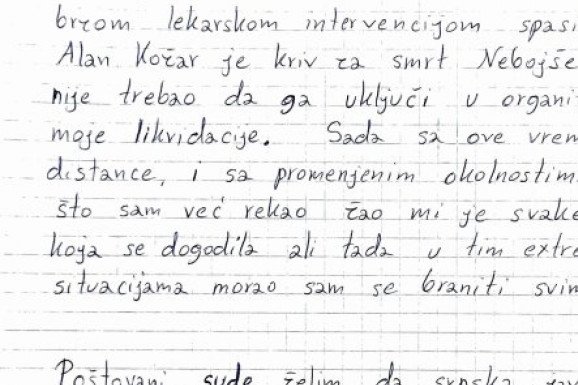 brzom lekarskom intervencijom spasi
Alan Kožar je kriv za smrt Nebojše
nije trebao da ga uključi u organi
moje likvidacije. Sada sa ove vrem
distance, i sa promenjenim okolnostim
što sam već rekao žao mi je svake
koja se dogodila ali tada u tim extre
situacijama morao sam se braniti svim
Poštovani sude želim da srpska